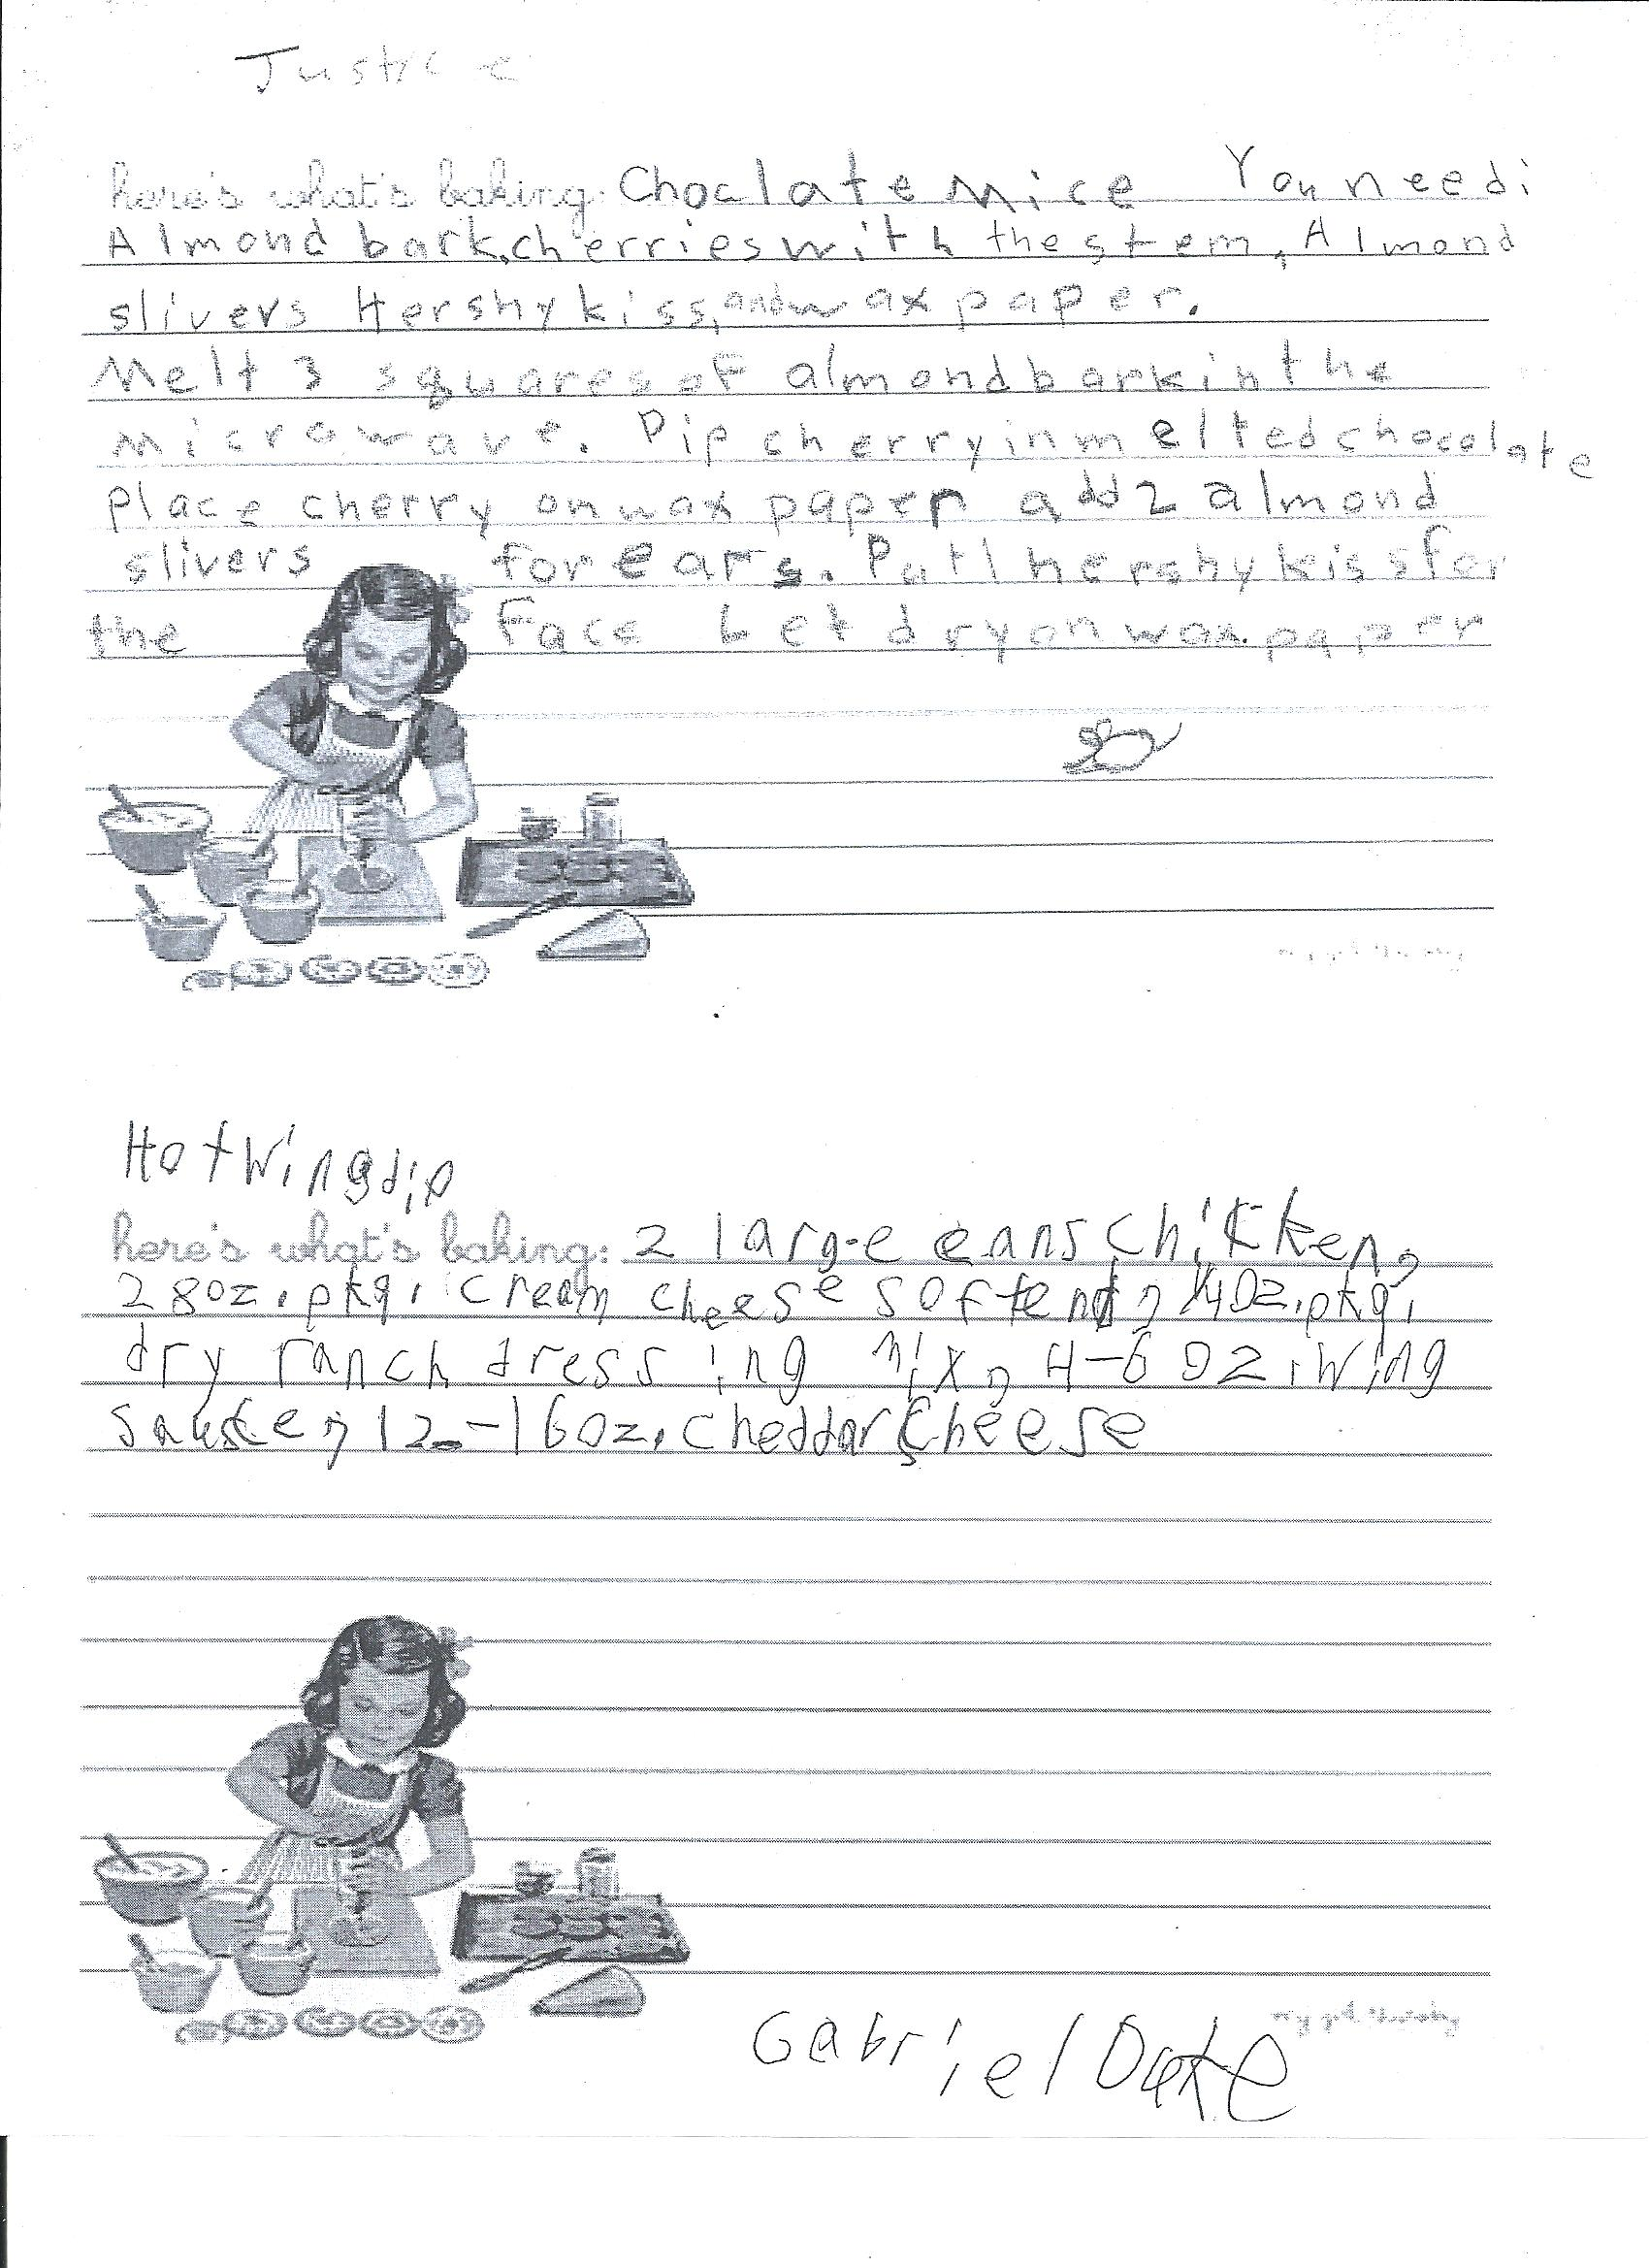 Justice
here's what's baking: Choclate Mice You need:
Almond bark, cherries with the stem, Almond
slivers Hershy kiss, and wax paper.
Melt 3 squares of almond bark in the
microwave. Dip cherry in melted chocolate
place cherry on wax paper add 2 almond
slivers for ears. Put 1 hershy kiss for
the face Let dry on wax paper
Hot Wing dip
here's what's baking: 2 large cans chikken,
2 8oz. pkg. cream cheese softend, 1/4 oz. pkg.
dry ranch dressing mix, 4-6 oz. wing
sauce, 12-16 oz. cheddar cheese
Gabriel